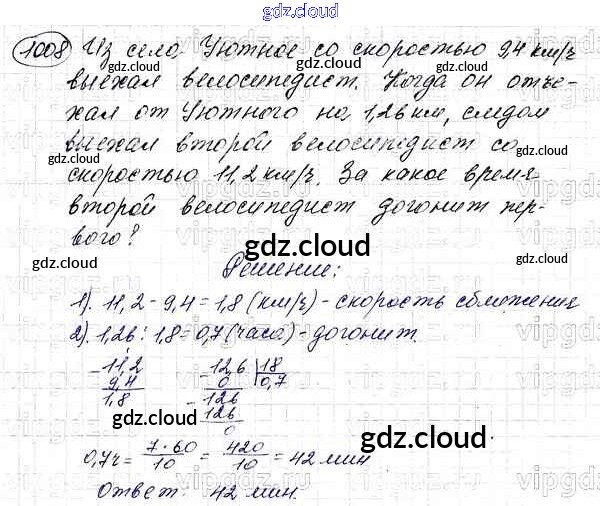 gdz.cloud
1008 Из села Уютное со скоростью 9,4 км/ч
выехал велосипедист. Когда он отъе-
хал от Уютного на 1,26 км, следом
выехал второй велосипедист со
скоростью 11,2 км/ч. За какое время
второй велосипедист догонит пер-
вого?
Решение:
1). 11,2 - 9,4 = 1,8 (км/ч) - скорость сближения
2). 1,26 : 1,8 = 0,7 (часа) - догонит.
- 11,2 - 12,6 | 18
9,4 0 0,7
1,8 - 126
126
0
0,7ч = 7·60/10 = 420/10 = 42 мин
Ответ: 42 мин.
gdz.cloud